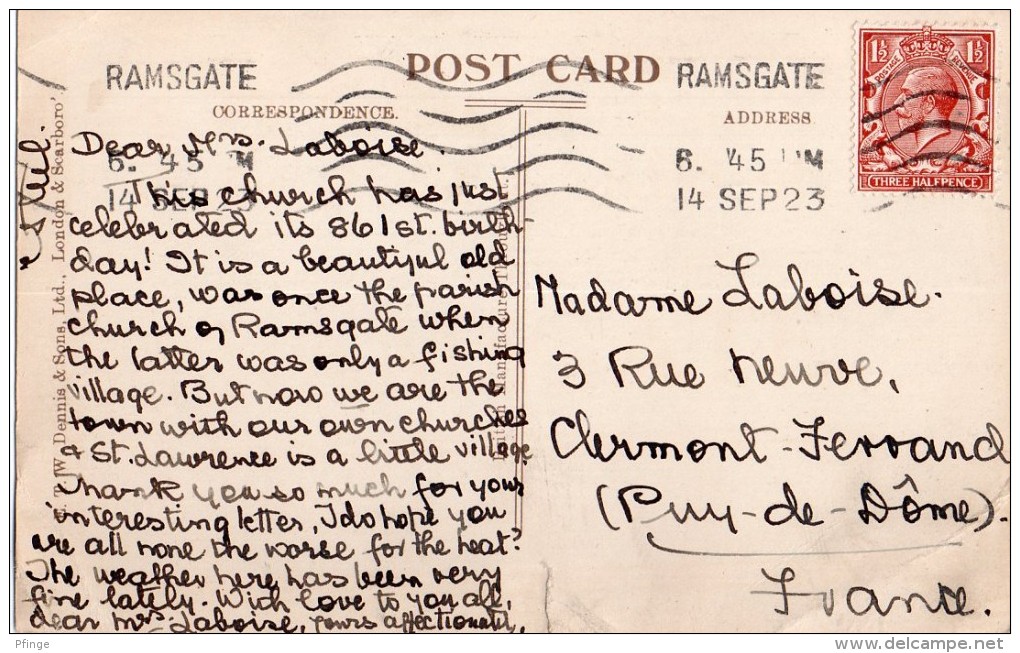 POST CARD
RAMSGATE
6. 45 PM
14 SEP 23
RAMSGATE
6. 45 PM
14 SEP 23
1½ 1½
POSTAGE REVENUE
THREE HALFPENCE
CORRESPONDENCE.
ADDRESS
Dennis & Sons, Ltd., London & Scarboro'
Dear Mrs. Laboise.
This church has just
celebrated its 861st. birth-
day! It is a beautiful old
place, was once the parish
church of Ramsgate when
the latter was only a fishing
village. But now we are the
town with our own churches
& St. Lawrence is a little village
Thank you so much for your
interesting letter, I do hope you
are all none the worse for the heat?
The weather here has been very
fine lately. With love to you all,
dear Mrs Laboise, yours affectionately,
Madame Laboise.
3 Rue Neuve,
Clermont-Ferrand
(Puy-de-Dôme).
France.
Pfinge
delcampe.net